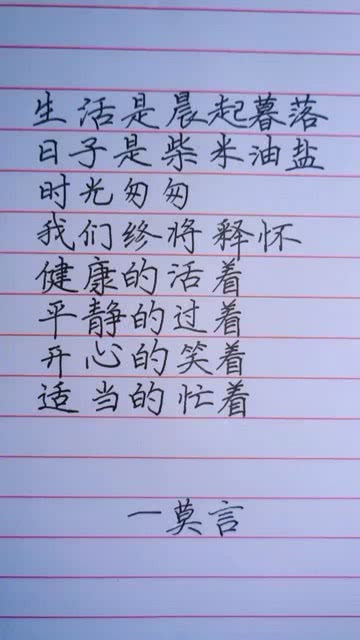 生活是晨起暮落
日子是柴米油盐
时光匆匆
我们终将释怀
健康的活着
平静的过着
开心的笑着
适当的忙着
一莫言